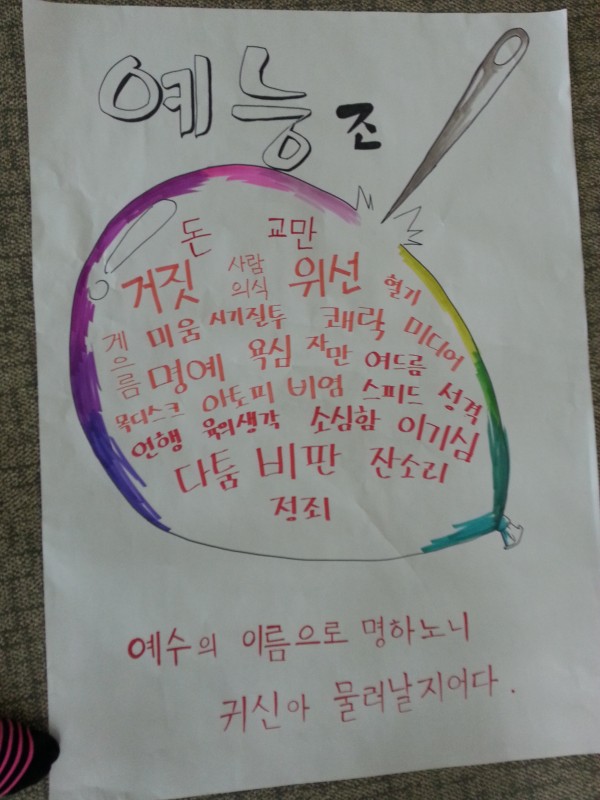 예능 조
돈 교만
거짓 사람의식 위선 혈기
게으름 미움 시기질투 쾌락 미디어
명예 욕심 자만 여드름
목디스크 아토피 비염 스피드 성격
언행 육의생각 소심함 이기심
다툼 비판 잔소리
정죄
예수의 이름으로 명하노니
귀신아 물러날지어다.